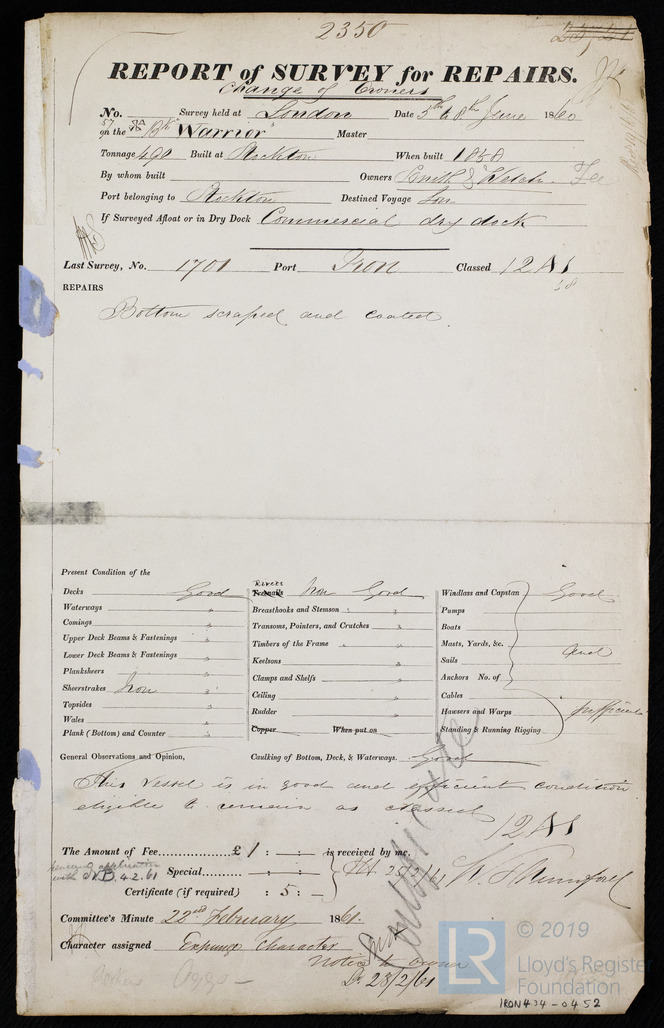 2350
REPORT of SURVEY for REPAIRS.
Change of Owners
No. Survey held at London Date 5th & 8th June 1860
on the Bk "Warrior" Master
Tonnage 490 Built at Stockton When built 1858
By whom built Owners Smith &
Port belonging to Stockton Destined Voyage
If Surveyed Afloat or in Dry Dock Commercial dry dock
Last Survey, No. 1701 Port Iron Classed 12 A1
58
REPAIRS
Bottom scraped and coated.
Present Condition of the
Decks Good
Waterways "
Comings "
Upper Deck Beams & Fastenings "
Lower Deck Beams & Fastenings "
Planksheers "
Sheerstrakes Iron "
Topsides "
Wales "
Plank (Bottom) and Counter "
Rivets
Treenails Iron Good
Breasthooks and Stemson "
Transoms, Pointers, and Crutches "
Timbers of the Frame "
Keelsons "
Clamps and Shelfs "
Ceiling "
Rudder "
Copper When put on
Windlass and Capstan Good
Pumps
Boats
Masts, Yards, &c.
Sails and
Anchors No. of
Cables
Hawsers and Warps Sufficient
Standing & Running Rigging
General Observations and Opinion, Caulking of Bottom, Deck, & Waterways. Good
This vessel is in good and efficient condition
eligible to remain as classed
12 A1
The Amount of Fee £ 1 : - : - is received by me,
Special : :
Certificate (if required) : 5 : -
25/2/61
Committee's Minute 22nd February 1861
Character assigned Expunge Character
Notice to Owner
23/2/61
LR
© 2019
Lloyd's Register
Foundation
IRON434-0452